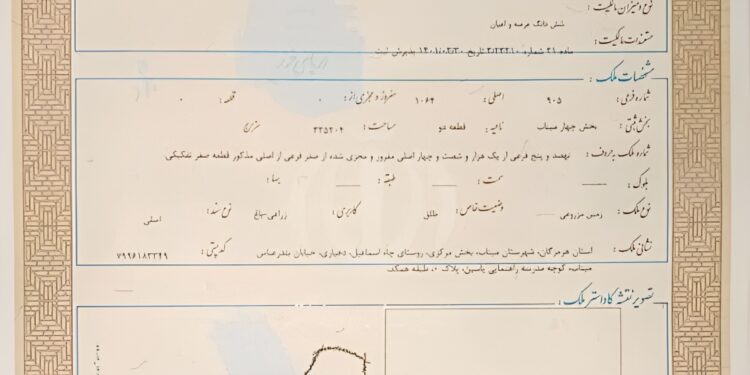 نوع و میزان مالکیت :
شش دانگ عرصه و اعیان
مستندات مالکیت :
ماده ۲۱ شماره ۲۱۰ تاریخ ۱۴۰۱/۰۲/۳۰ پذیرش ثبت
مشخصات ملک :
شماره فرعی : ۹۰۵ اصلی : ۱۰۶۴ مفروز و مجزی از : ۰ قطعه : ۰
بخش ثبتی : بخش چهار میناب ناحیه : قطعه دو مساحت : مترمربع
شماره ملک به حروف : نهصد و پنج فرعی از یک هزار و شصت و چهار اصلی مفروز و مجزی شده از صفر فرعی از اصلی مذکور قطعه صفر تفکیکی.
بلوک : —— سمت : —— طبقه : ——
نوع ملک : زمین مزروعی —— وضعیت خاص : طلق کاربری : زراعی-صالح نوع سند : اصلی
نشانی ملک : استان هرمزگان، شهرستان میناب، بخش مرکزی، روستای چاه اسماعیل، دهیاری، خیابان بندرعباس کدپستی : ۷۹۹۶۱۸۳۳۴۹
میناب، کوچه مدرسه راهنمایی یاسین، پلاک ۰، طبقه همکف
تصویر نقشه کاداستر ملک :